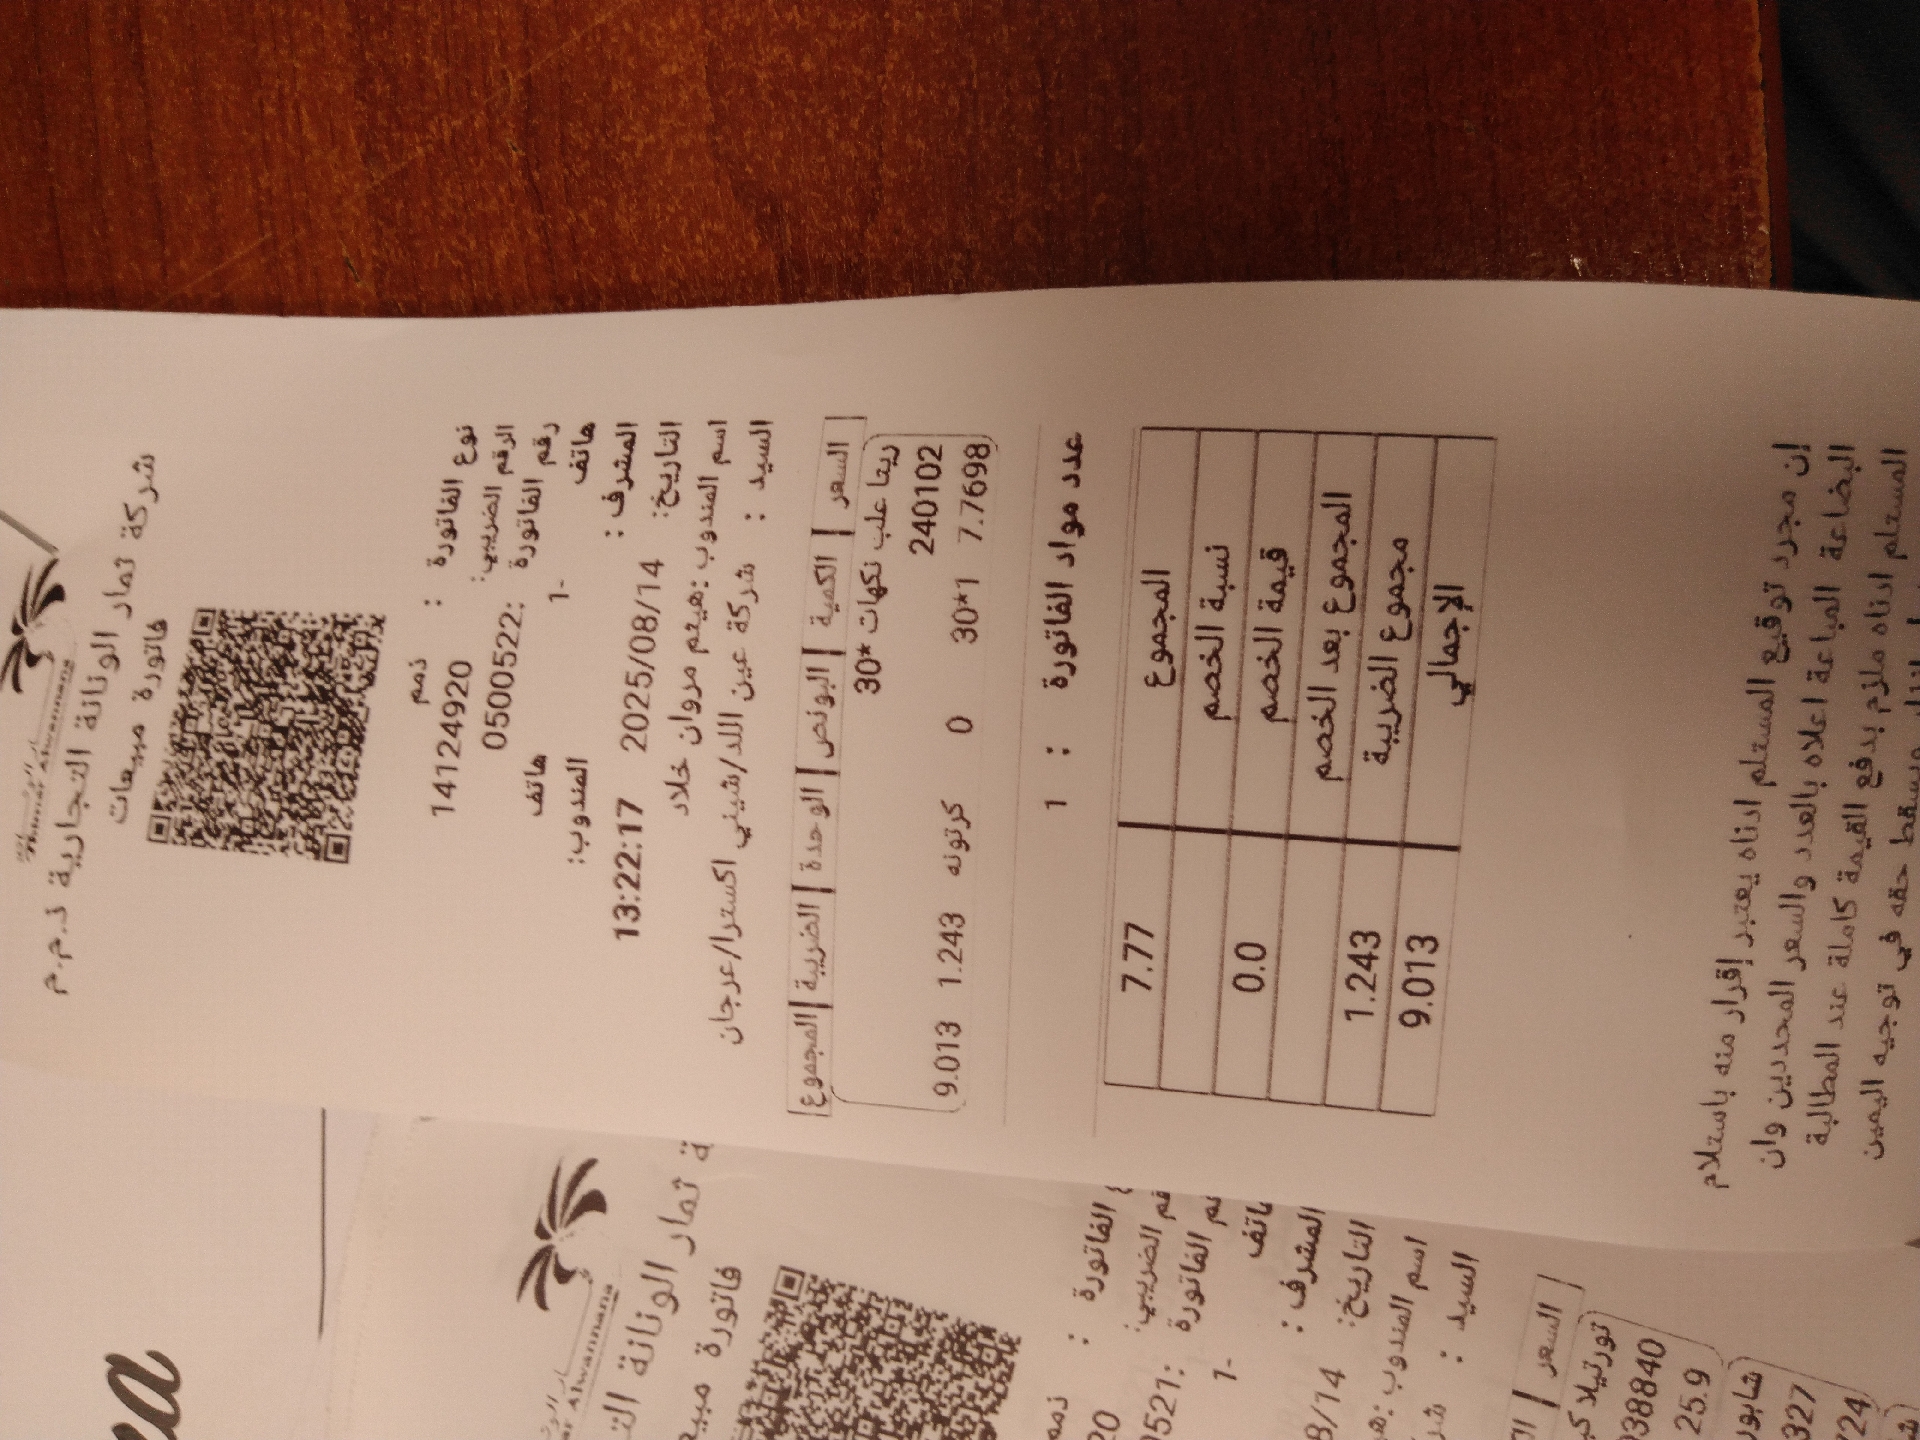 Thamar Alwannana
شركة تمار الونانة التجارية ذ.م.م
فاتورة مبيعات
نوع الفاتورة : ذمم
الرقم الضريبي: 14124920
رقم الفاتورة :0500522
هاتف 1- هاتف
المشرف : المندوب:
التاريخ: 2025/08/14 13:22:17
اسم المندوب :هيثم مروان خلاد
السيد : شركة عين اللد/شيني اكسترا/عرجان
السعر | الكمية | البونص | الوحدة | الضريبة | المجموع
ريتا علب نكهات *30
240102
7.7698 30*1 0 كرتونه 1.243 9.013
عدد مواد الفاتورة : 1
المجموع 7.77
نسبة الخصم
قيمة الخصم 0.0
المجموع بعد الخصم
مجموع الضريبة 1.243
الإجمالي 9.013
إن مجرد توقيع المستلم ادناه يعتبر إقرار منه باستلام
البضاعة المباعة اعلاه بالعدد والسعر المحددين وان
المستلم ادناه ملازم بدفع القيمة كاملة عند المطالبة
ويسقط حقه في توجيه اليمين
ة تمار الونانة
فاتورة
الفاتورة : ذمم
الضريبي:
الفاتورة :
1-
المشرف :
التاريخ: 8/14
اسم المندوب
السيد :
السعر
تورتيلا
38840
25.9
شابور
327
724